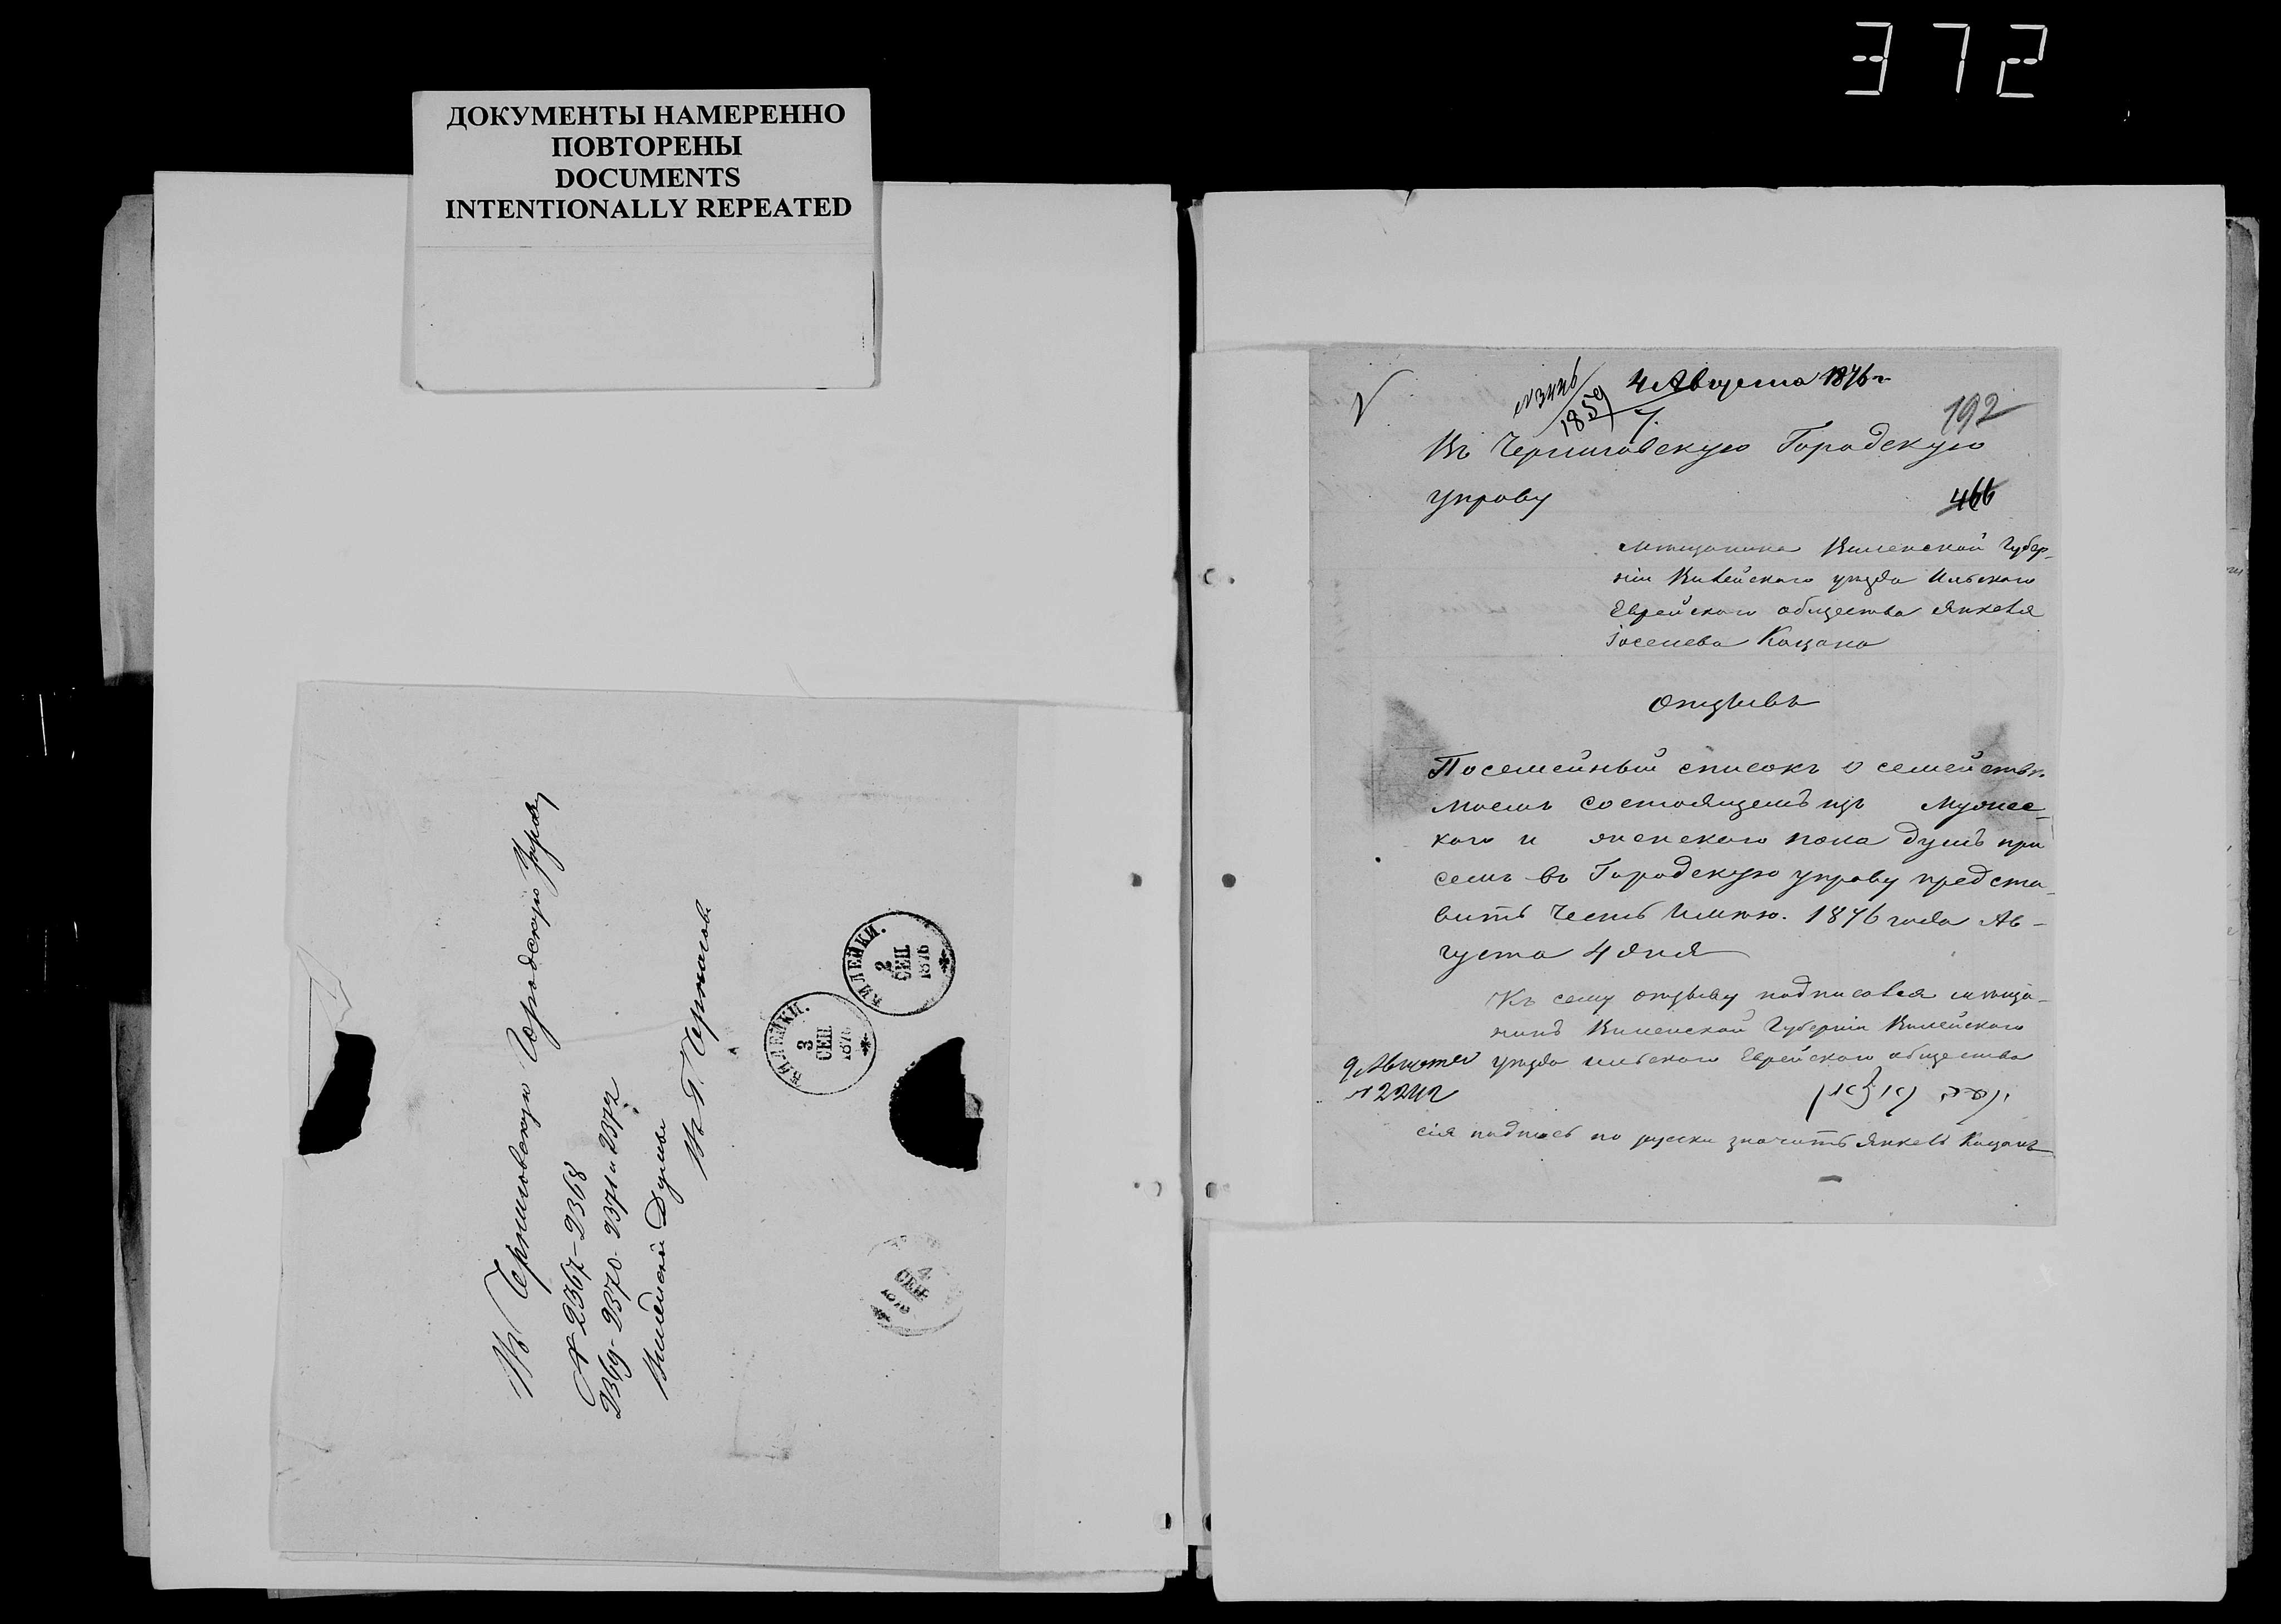 372
ДОКУМЕНТЫ НАМЕРЕННО
ПОВТОРЕНЫ
DOCUMENTS
INTENTIONALLY REPEATED
Въ Черниговскую Городскую Управу
№ 2367-2368
2369-2370-2371 и 2372
Вилейской Думы
Въ Г. Чернигов
ВИЛЕЙКИ.
2
СЕП
1876
ВИЛЕЙКИ.
3
СЕП
1876
4 Августа 1876 г.
1859
192
Въ Черниговскую Городскую
управу
466
мещанина Виленской Губер-
ніи Вилейского уезда Ильского
Еврейского общества Янкеля
Іоселева Кацана
отзывъ
Посемейный списокъ о семействѣ
моемъ состоящемъ изъ мужес-
каго и женскаго пола душъ при
семъ въ Городскую управу предста-
вить честь имѣю. 1876 года Ав-
густа 4 дня
Къ сему отзыву подписался меща-
нинъ Виленской Губерніи Вилейского
уезда ильского Еврейского общества
9 Августа
№ 2242
сія подпись по русски значитъ Янкель Кацанъ